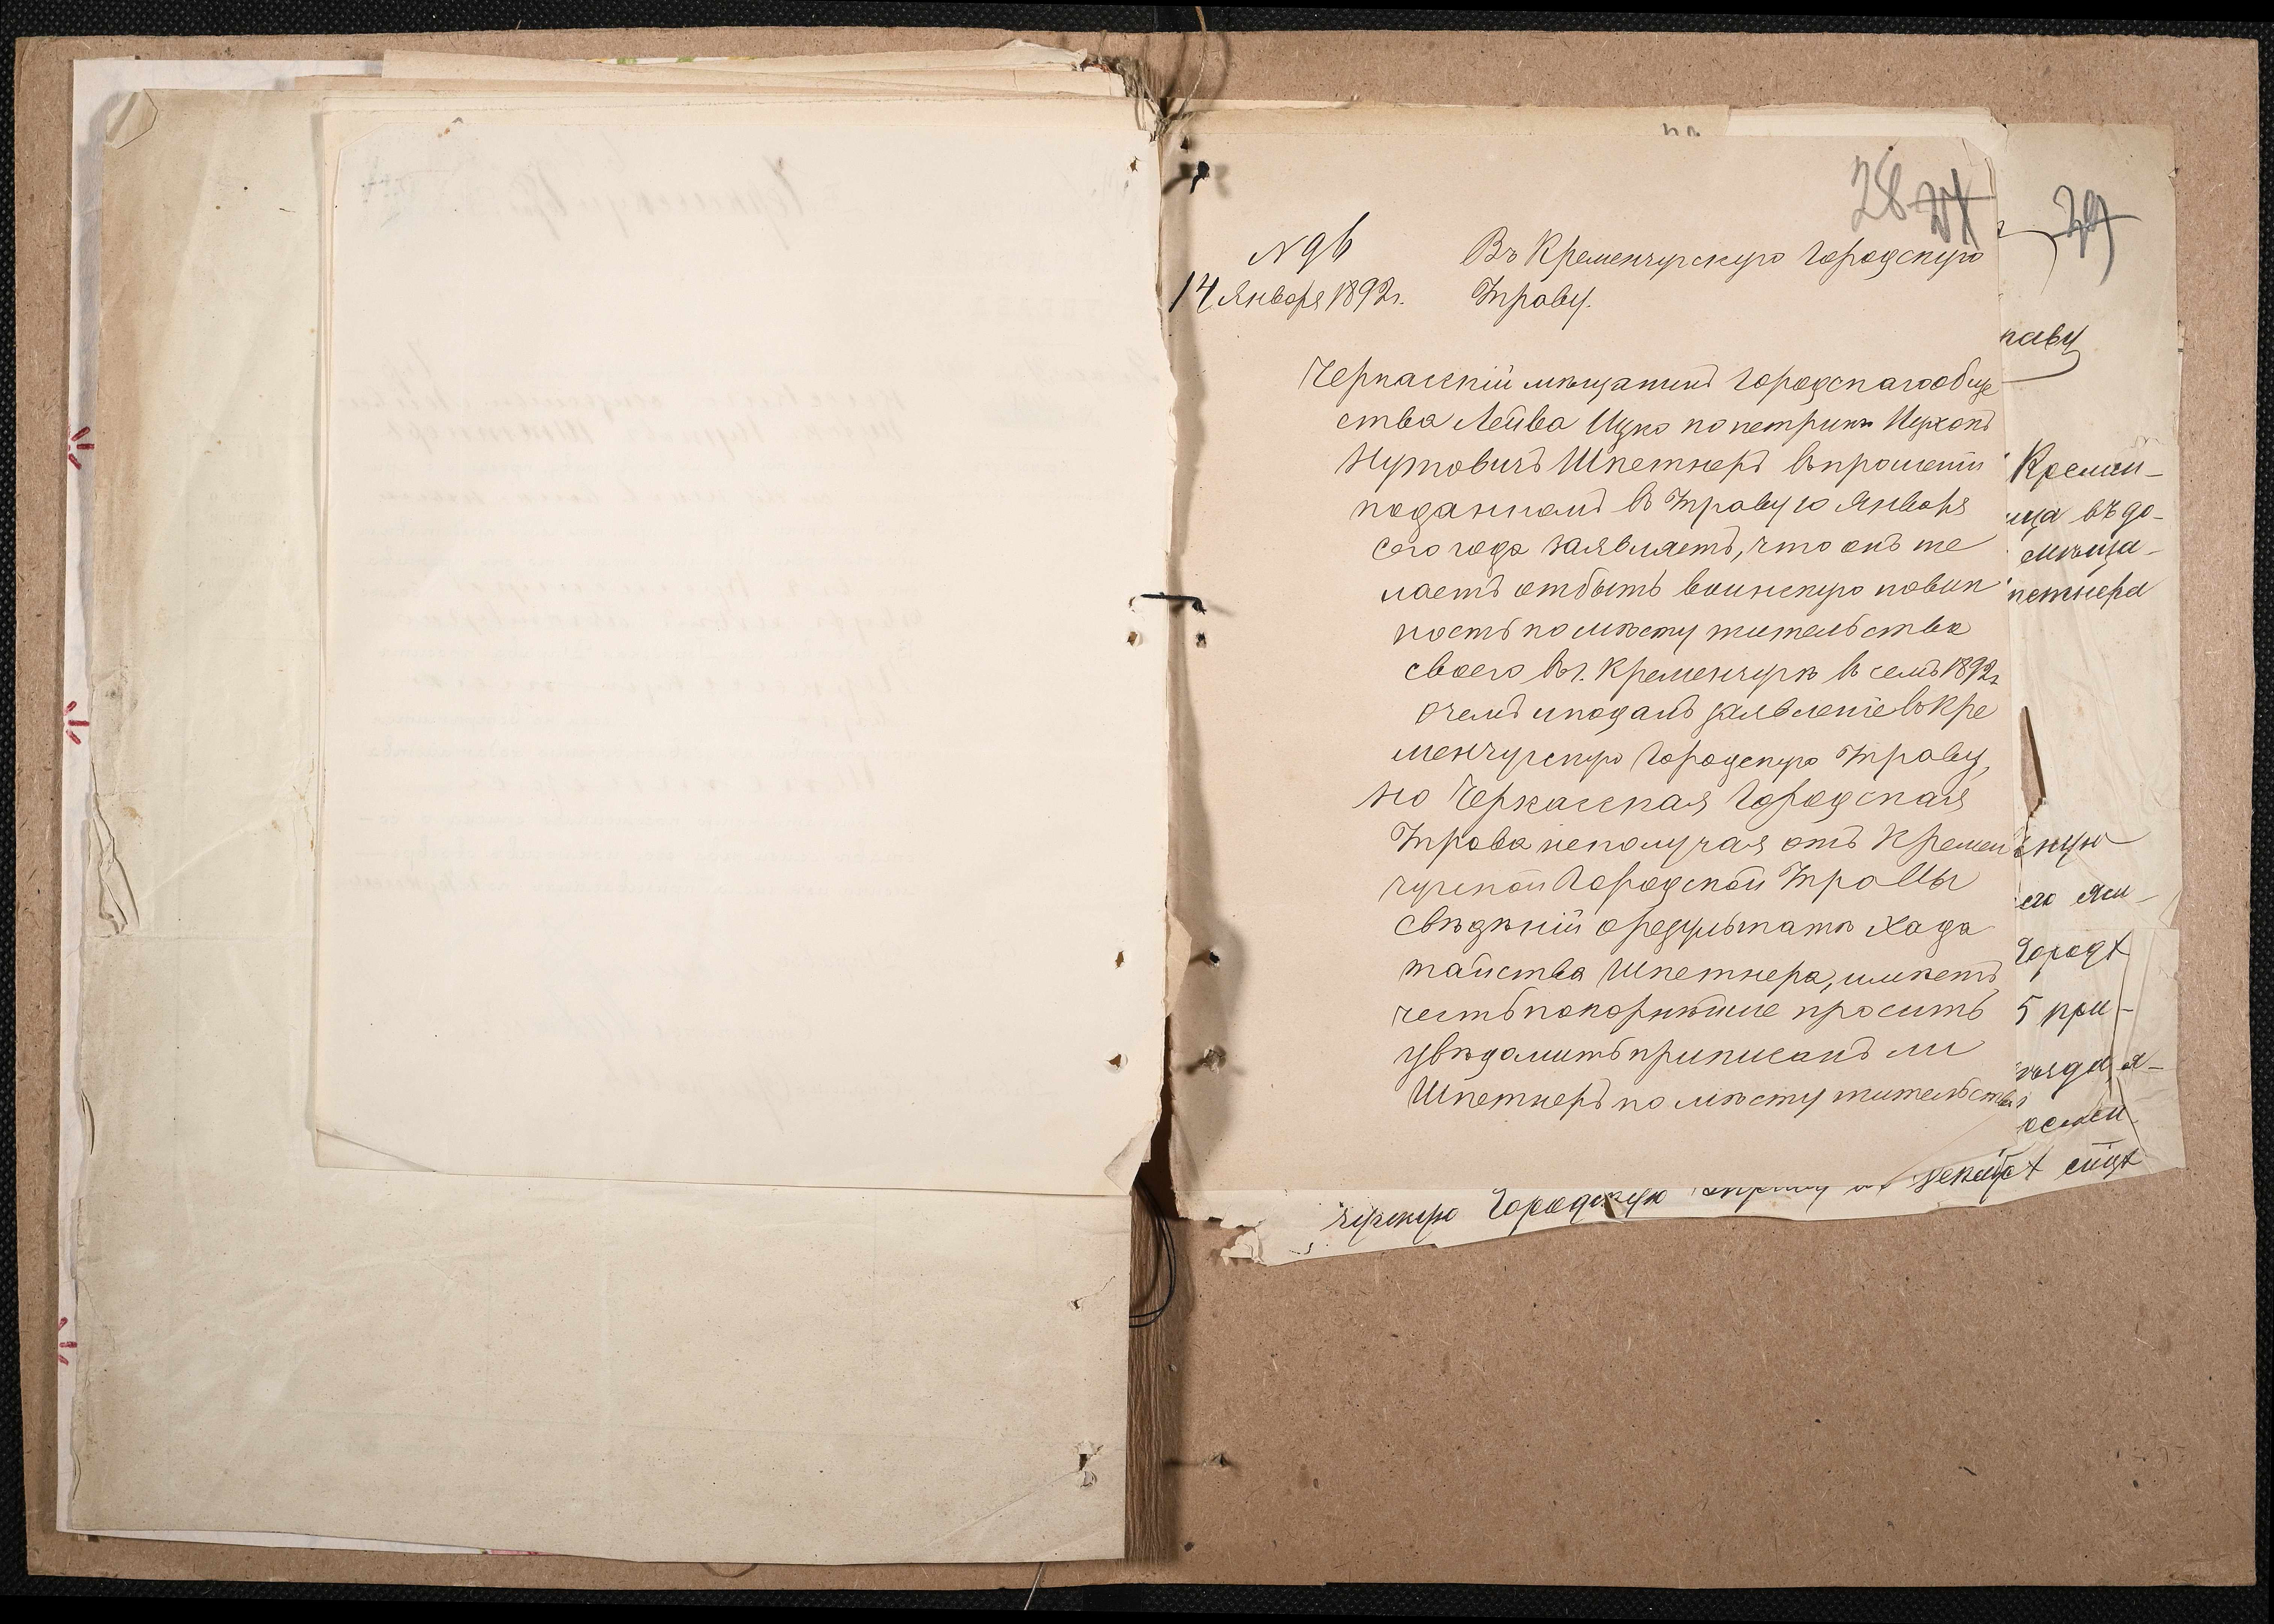 28
№ 96
14 Января 1892 г.
Въ Кременчугскую Городскую
Управу.
Черкасскій мѣщанинъ Городскаго обще
ства Лейба Ицко по метрикѣ Ицхокъ
Нутовичъ Шпетнеръ въ прошеніи
поданномъ въ Управу 10 Января
сего года заявляетъ, что онъ же
лаетъ отбыть воинскую повин
ность по мѣсту жительства
своего въ г. Кременчугѣ въ семъ 1892 г.
о чемъ и подалъ заявленіе въ Кре
менчугскую Городскую Управу,
но Черкасская Городская
Управа неполучая отъ Кремен
чугской Городской Управы
свѣдѣній о результатѣ хода
тайства Шпетнера, имѣетъ
честь покорнѣйше просить
увѣдомить приписанъ ли
Шпетнеръ по мѣсту жительства
29
раву
Кремен-
ица въ до-
мѣща-
петнера
скую
его жи-
Городѣ
5 при-
чугскую Городскую